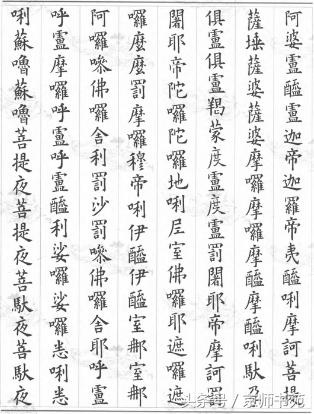 阿婆盧醯盧迦帝迦羅帝夷醯唎摩訶菩提
薩埵薩婆薩婆摩囉摩囉摩醯摩醯唎馱孕
俱盧俱盧羯蒙度盧度盧罰闍耶帝摩訶罰
闍耶帝陀囉陀囉地唎尼室佛囉耶遮囉遮
囉麼麼罰摩囉穆帝唎伊醯伊醯室那室那
阿囉嘇佛囉舍利罰沙罰嘇佛囉舍耶呼盧
呼盧摩囉呼盧呼盧醯利娑囉娑囉悉唎悉
唎蘇嚧蘇嚧菩提夜菩提夜菩馱夜菩馱夜
头条号